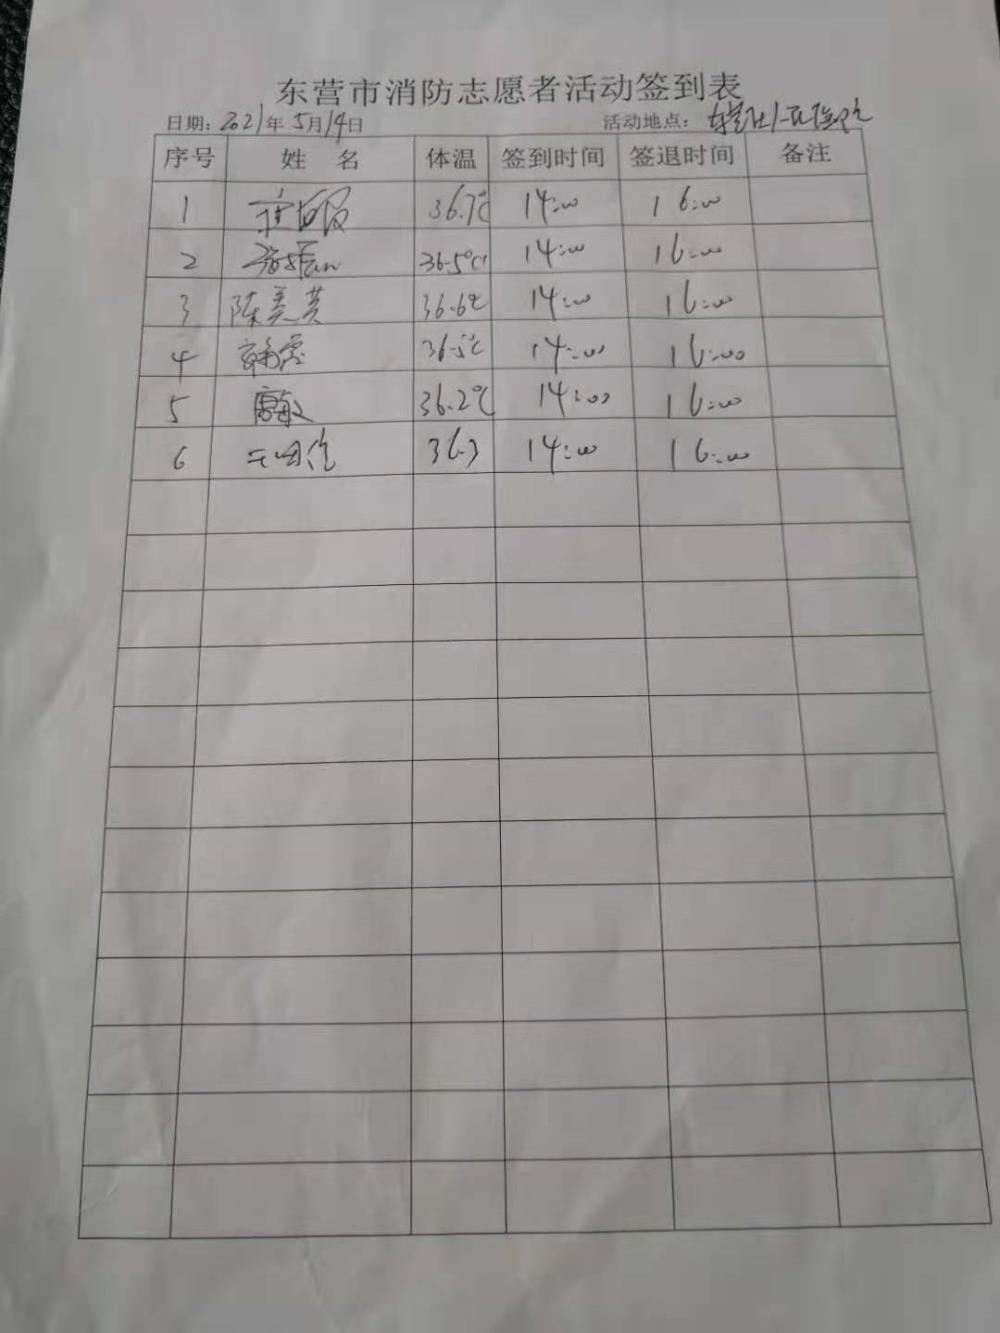 东营市消防志愿者活动签到表
日期: 2021年5月14日 活动地点:
序号 姓 名 体温 签到时间 签退时间 备注
1 36.7℃ 14:00 16:00
2 36.5℃ 14:00 16:00
3 陈美英 36.6℃ 14:00 16:00
4 36.5℃ 14:00 16:00
5 36.2℃ 14:00 16:00
6 36.3 14:00 16:00